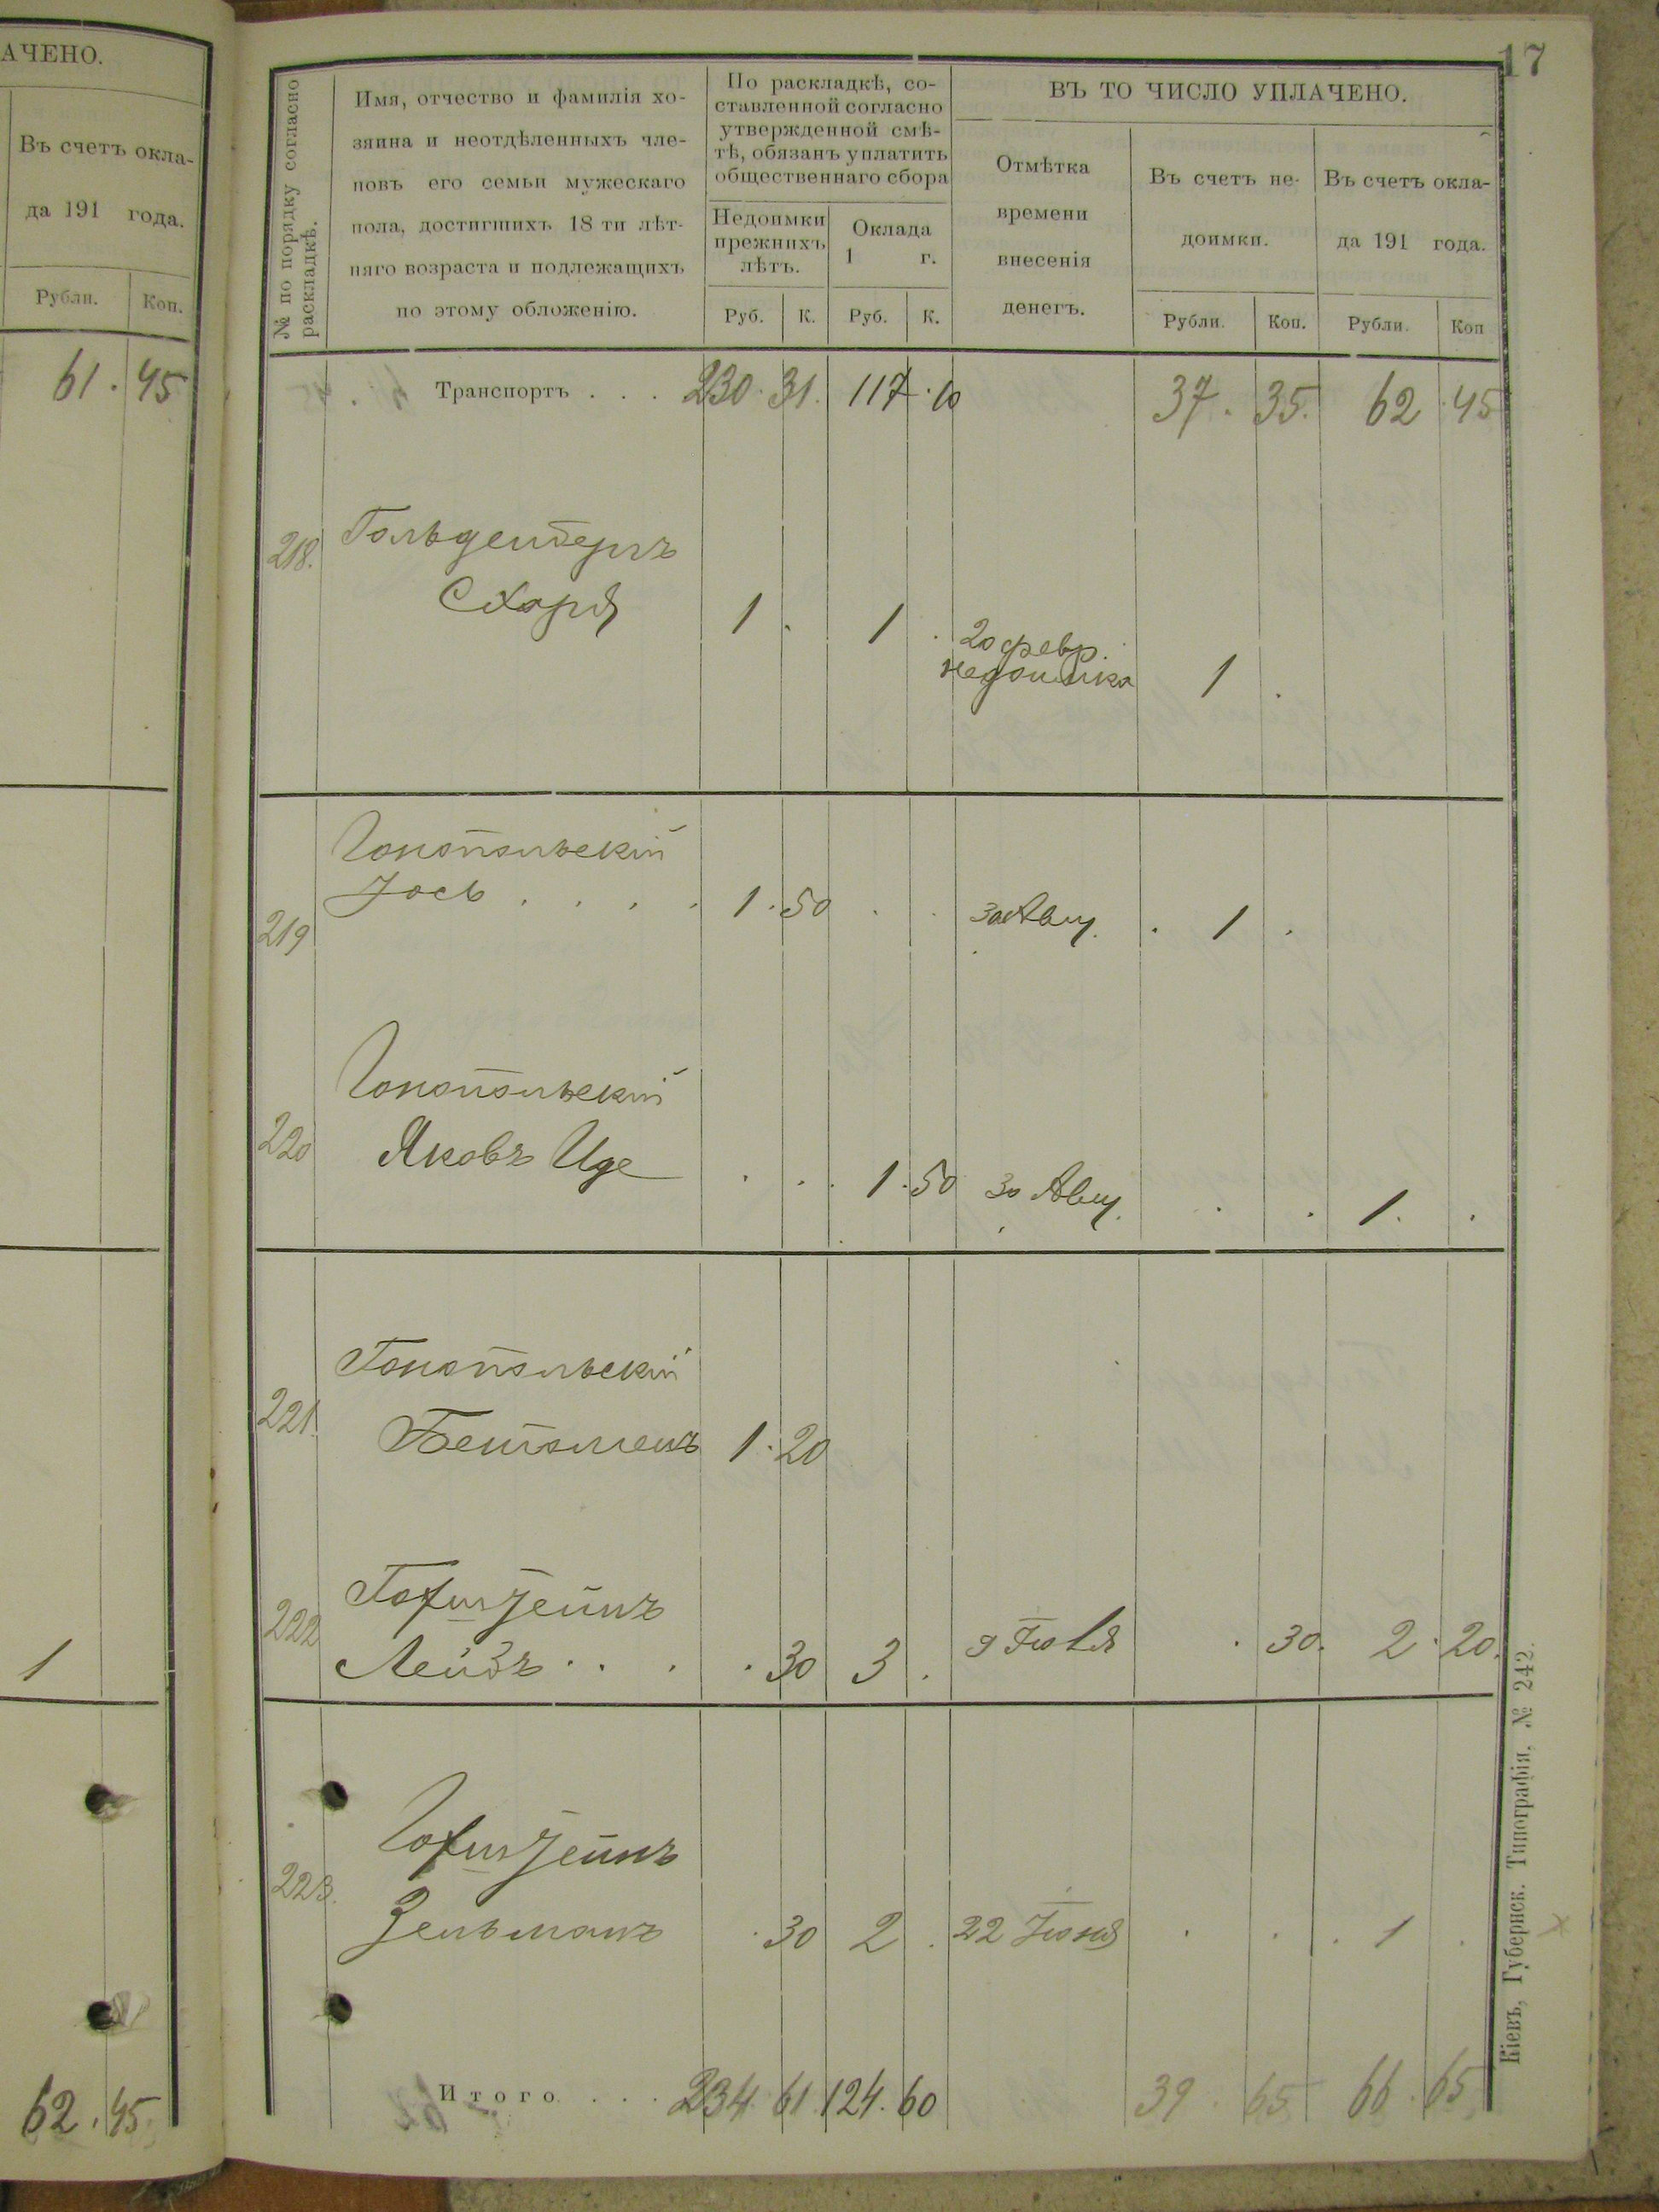 АЧЕНО.
Въ счетъ окла-
да 191 года.
Рубли. Коп.
61. 45
1
62. 45.
17
№ по порядку согласно
раскладкѣ.
Имя, отчество и фамилія хо-
зяина и неотдѣленныхъ чле-
новъ его семьи мужескаго
пола, достигшихъ 18 ти лѣт-
няго возраста и подлежащихъ
по этому обложенію.
По раскладкѣ, со-
ставленной согласно
утвержденной смѣ-
тѣ, обязанъ уплатить
общественнаго сбора
Недоимки
прежнихъ
лѣтъ.
Руб. К.
Оклада
1 г.
Руб. К.
ВЪ ТО ЧИСЛО УПЛАЧЕНО.
Отмѣтка
времени
внесенія
денегъ.
Въ счетъ не-
доимки.
Рубли. Коп.
Въ счетъ окла-
да 191 года.
Рубли. Коп
Транспортъ . . . 230. 31. 117. 10 37. 35. 62. 45
218. Гольденбергъ
1. 1. 20 февр.
недоимка 1.
Гонопольскій
219 Іось . . . . 1. 50 . . 30 Авг. . 1 .
Гонопольскій
220 Яковъ Иде . . . 1. 50 30 Авг. . . 1. .
Гонопольскій
221. 1. 20
Гохштейнъ
222 Лейбъ . . . . 30 3 . 9 Іюля . 30. 2. 20.
Гохштейнъ
223. Зельманъ . 30 2 . 22 Іюня . . . 1 .
Итого . . . 234. 61. 124. 60 39. 65 66. 65
Кіевъ, Губернск. Типографія, № 242.